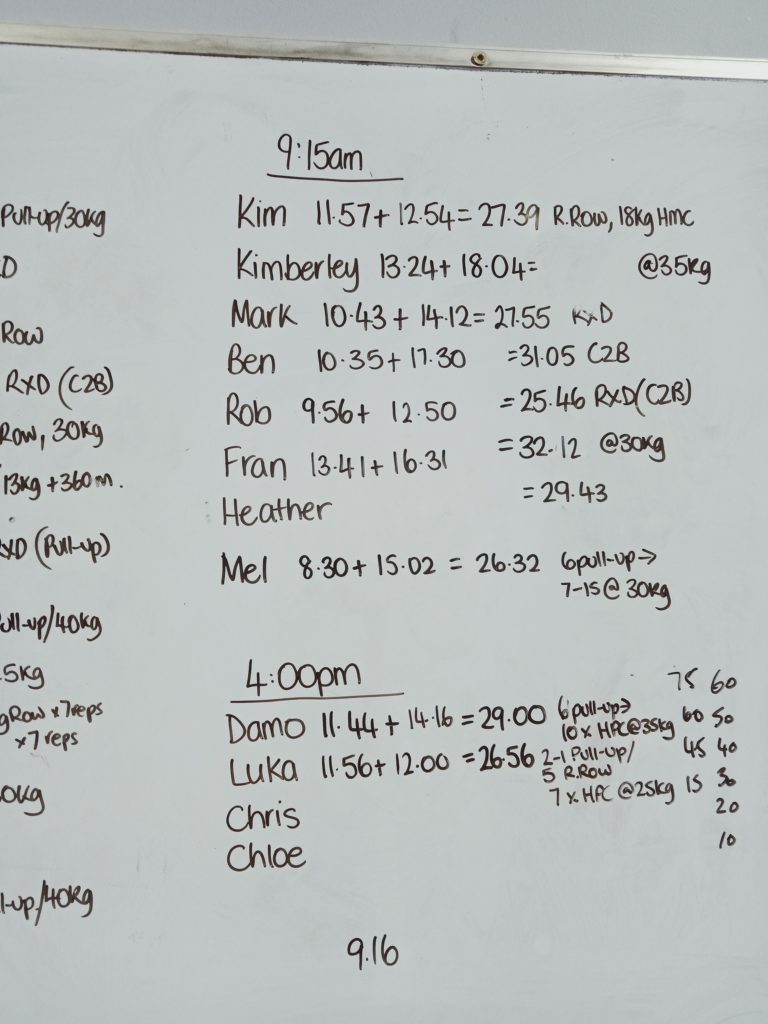 9:15am
Pull-up/30kg
Kim 11.57 + 12.54 = 27.39 R.Row, 18kg HMC
D
Kimberley 13.24 + 18.04 = @35kg
Row
Mark 10.43 + 14.12 = 27.55 RxD
RxD (C2B)
Ben 10.35 + 17.30 = 31.05 C2B
Row, 30kg
Rob 9.56 + 12.50 = 25.46 RXD (C2B)
13kg + 360m.
Fran 13.41 + 16.31 = 32.12 @30kg
Heather = 29.43
XD (Pull-up)
Mel 8.30 + 15.02 = 26.32 6 pull-up →
7-15 @ 30kg
ull-up/40kg
5kg
gRow x 7 reps
x 7 reps
0kg
l-up/40kg
4:00pm
75 60
Damo 11.44 + 14.16 = 29.00 6 pull-up →
10 x HPC @35kg 60 50
Luka 11.56 + 12.00 = 26.56 2-1 Pull-up/
5 R.Row
45 40
7 x HPC @25kg 15 30
Chris
20
Chloe
10
9.16